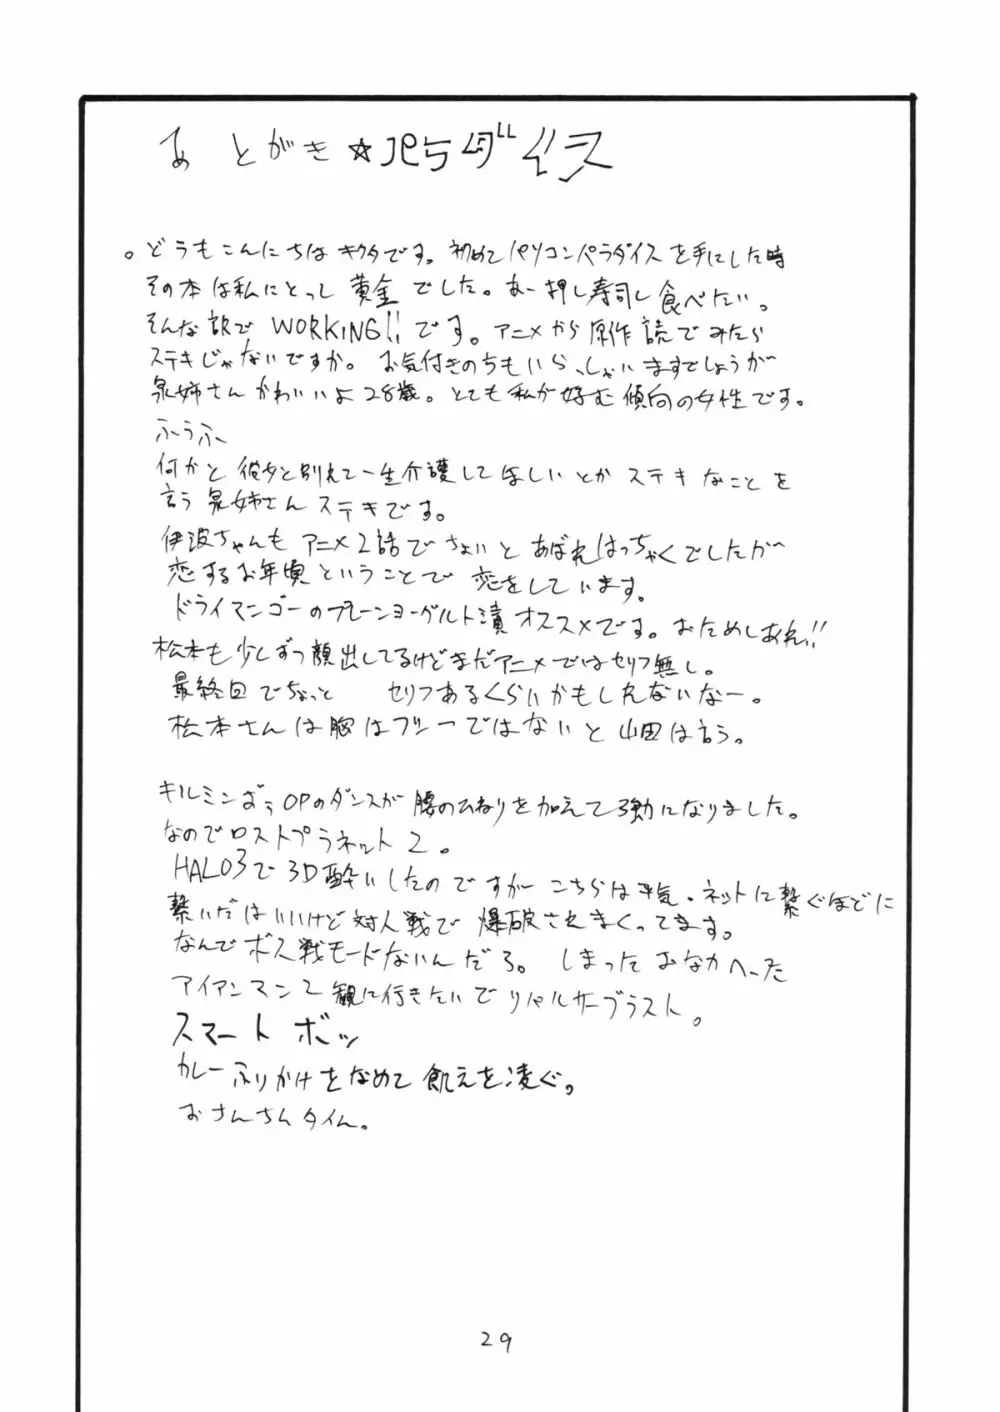 あとがき☆パラダイス
。どうもこんにちはキクタです。初めてパソコンパラダイスを手にした時
その本は私にとって黄金でした。あー押し寿司し食べたい。
そんな訳でWORKING!!です。アニメから原作読んでみたら
ステキじゃないですか。お気付きのちもいらっしゃいますでしょうが
泉姉さんかわいいよ28歳。とても私が好む傾向の女性です。
ふうふ
何かと彼女と別れて一生介護してほしいとかステキなことを
言う泉姉さんステキです。
伊波ちゃんもアニメ2話でちょいとあばれはっちゃくでしたが
恋するお年頃ということで恋をしています。
ドライマンゴーのプレーンヨーグルト漬オススメです。おためしあれ!!
松本も少しずつ顔出してるけどまだアニメではセリフ無し。
最終回でちょっと セリフあるくらいかもしれないなー。
松本さんは胸はフリーではないと山田は言う。
キルミンずぅOPのダンスが腰のひねりを加えて強力になりました。
なのでロストプラネット2。
HALO3で3D酔いしたのですがこちらは平気。ネットに繋ぐほどに
繋いだはいいけど対人戦で爆破されまくってます。
なんでボス戦モードないんだろ。しまったおなかへった
アイアンマン2観に行きたいでリパルサーブラスト。
スマートボッ
カレーふりかけをなめて飢えを凌ぐ。
おさんちんタイム。
29